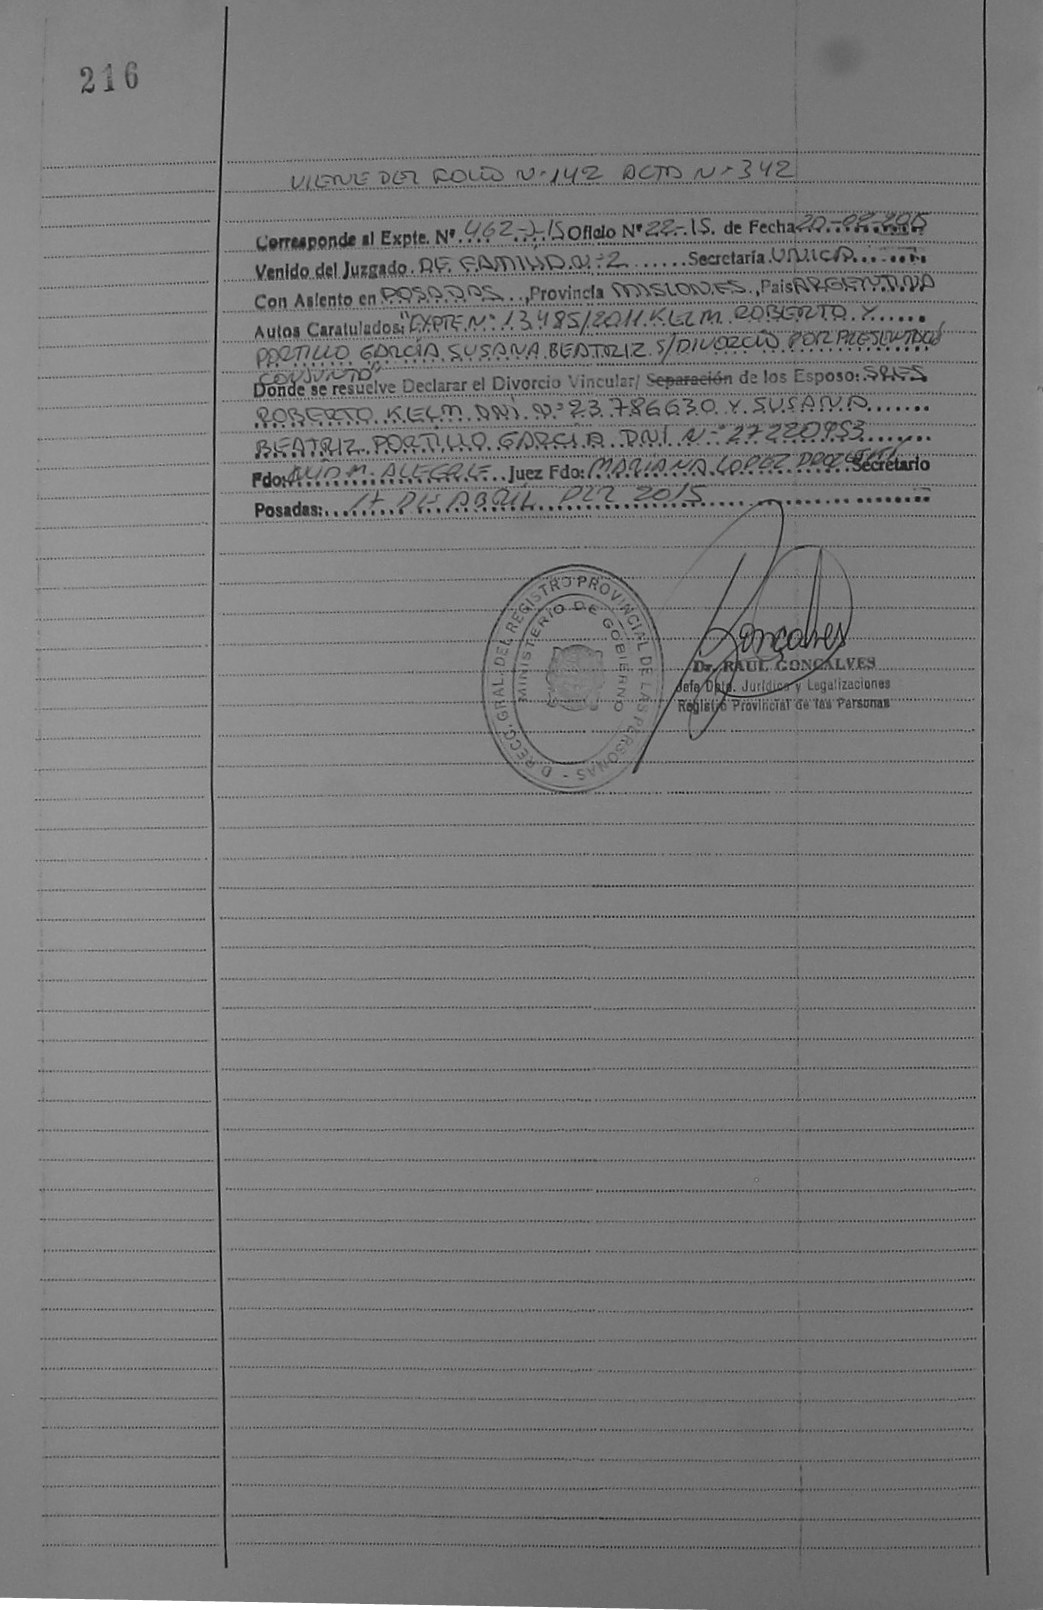 216
VIENE DEL FOLIO Nº 142 ACTA Nº 342
Corresponde al Expte. Nº 462-J-15 Oficio Nº 22-15. de Fecha 20-02-2015
Venido del Juzgado DE FAMILIA Nº 2 Secretaría UNICA
Con Asiento en POSADAS, Provincia MISIONES, País ARGENTINA
Autos Caratulados: "EXPTE Nº 13485/2011 KLEM ROBERTO Y
PORTILLO GARCÍA SUSANA BEATRIZ S/DIVORCIO POR PRESENTACIÓN
CONJUNTO"
Donde se resuelve Declarar el Divorcio Vincular/ Separación de los Esposo: SRES
ROBERTO KLEM DNI Nº 23.786630 Y SUSANA
BEATRIZ PORTILLO GARCÍA DNI Nº 27220953
Fdo: M. ALEGRE Juez Fdo: MARIANA LOPEZ Secretario
Posadas: 17 DE ABRIL DEL 2015
DIRECC. GRAL. DEL REGISTRO PROVINCIAL DE LAS PERSONAS
MINISTERIO DE GOBIERNO
Gonçalves
Dr. RAUL GONÇALVES
Jefe Dpto. Jurídico y Legalizaciones
Registro Provincial de las Personas